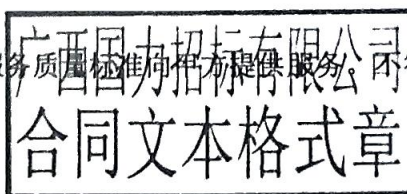 广西国力招标有限公司
务质量标准向甲方提供服务，不
合同文本格式章